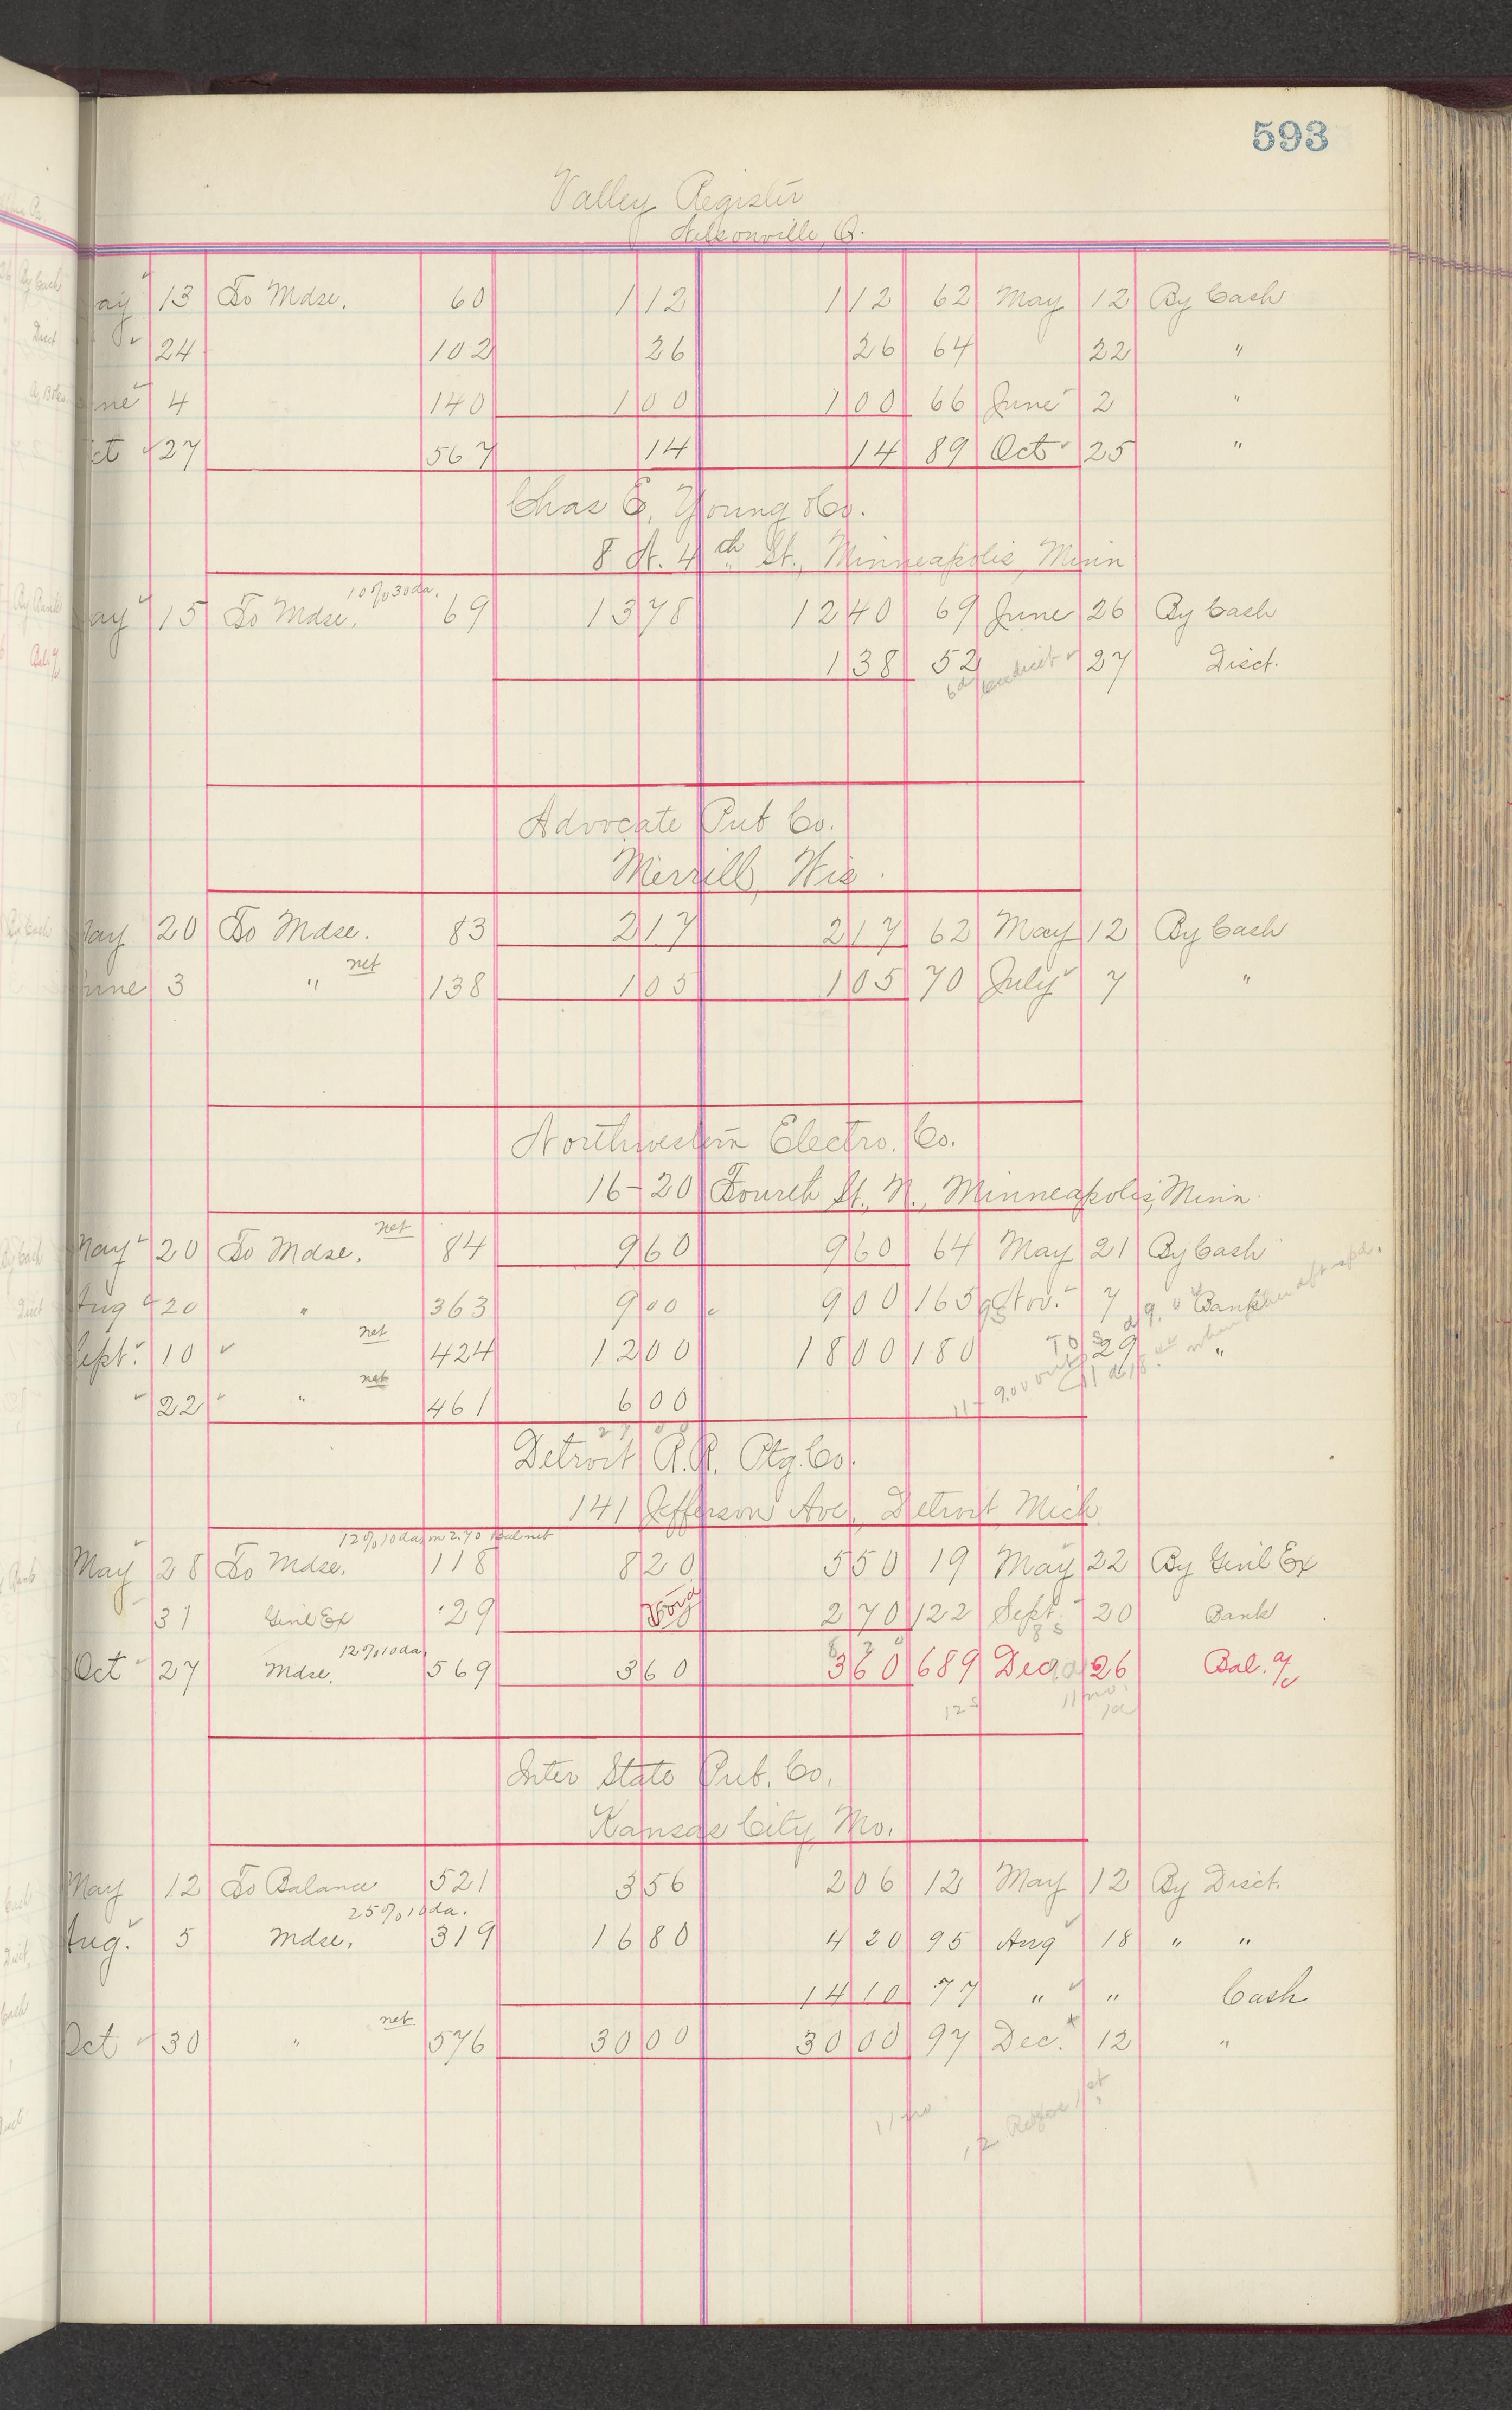 593
Valley Register
Nelsonville, O.
ay 13 To Mdse. 60 1 12 1 12 62 May 12 By Cash
24 102 26 26 64 22 "
ne 4 140 1 00 1 00 66 June 2 "
ct 27 567 14 14 89 Oct 25 "
Chas E. Young & Co.
8 N. 4th St., Minneapolis, Minn
10% 30 da.
ay 15 To Mdse. 69 13 78 12 40 69 June 26 By Cash
1 38 52 27 Disct.
Advocate Pub Co.
Merrill, Wis.
ay 20 To Mdse. 83 2 17 2 17 62 May 12 By Cash
net
une 3 " 138 1 05 1 05 70 July 7 "
Northwestern Electro. Co.
16-20 Fourth St., N., Minneapolis, Minn.
net
May 20 To Mdse. 84 9 60 9 60 64 May 21 By Cash
Aug 20 " 363 9 00 9 00 165 Nov. 7 Bank
net
Sept. 10 424 12 00 18 00 180 29 "
net
" 22 " 461 6 00
27 00
Detroit R.R. Ptg. Co.
141 Jefferson Ave., Detroit, Mich.
12% 10 da. on 2.70 Bal net
May 28 To Mdse. 118 8 20 5 50 19 May 22 By Genl Ex
31 Genl Ex 29 Void 2 70 122 Sept. 20 Bank
8 20
12% 10 da.
Oct 27 Mdse. 569 3 60 3 60 689 Dec. 26 Bal. a/c
12 11 mo.
Inter State Pub. Co.
Kansas City, Mo.
May 12 To Balance 521 3 56 2 06 12 May 12 By Disct.
25% 10 da.
Aug. 5 Mdse. 319 16 80 4 20 95 Aug 18 " "
14 10 77 " " Cash
net
Oct 30 " 576 30 00 30 00 97 Dec. 12 "
11 mo.
12 Before 1st